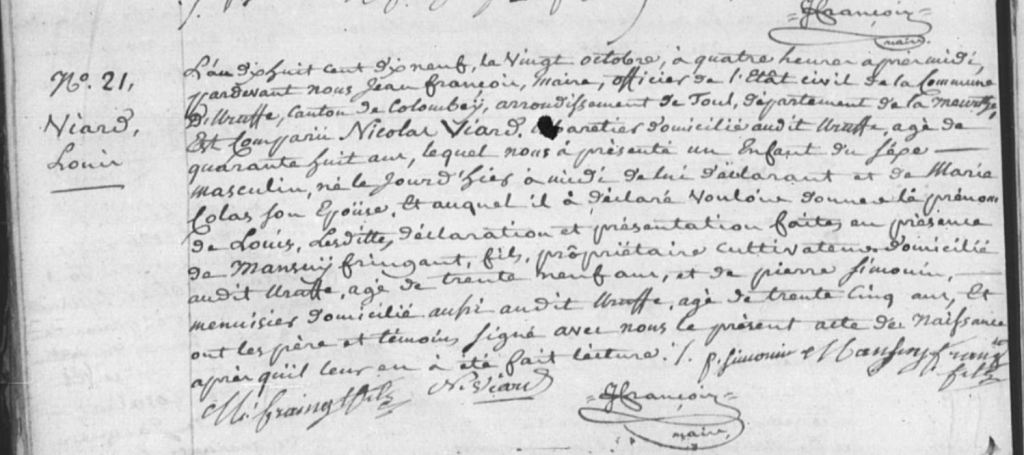 JFrançois
maire.
N.º 21,
Viard,
Louis
L'an dixhuit cent dixneuf, le Vingt octobre, à quatre heures après midi,
pardevant nous Jean françois, Maire, officier de l'Etât civil de la Commune
D'Uruffe, Canton de Colombey, arrondissement de Toul, département de la meurthe,
Est Comparû Nicolas Viard, domicilié audit Uruffe, agé de
quarante huit ans, lequel nous à présenté un Enfant du séxe
masculin, né le Jourd'hier à midi de lui déclarant et de Marie
Colas son Epoüse, Et auquel il à déclaré Vouloir donner le prénom
de Louis, Lesdittes déclaration et présentation faites en présence
de Mansuÿ fringant, fils, propriétaire Cultivateur domicilié
audit Uruffe, agé de trente neuf ans, et de pierre Simonin,
menuisier domicilié aussi audit Uruffe, agé de trente Cinq ans, Et
ont les père et témoins signé avec nous le présent acte de Naissance
après qu'il leur en à été fait lecture ./. p. simonin Mansuy
fils
N. Viard
JFrançois
maire,